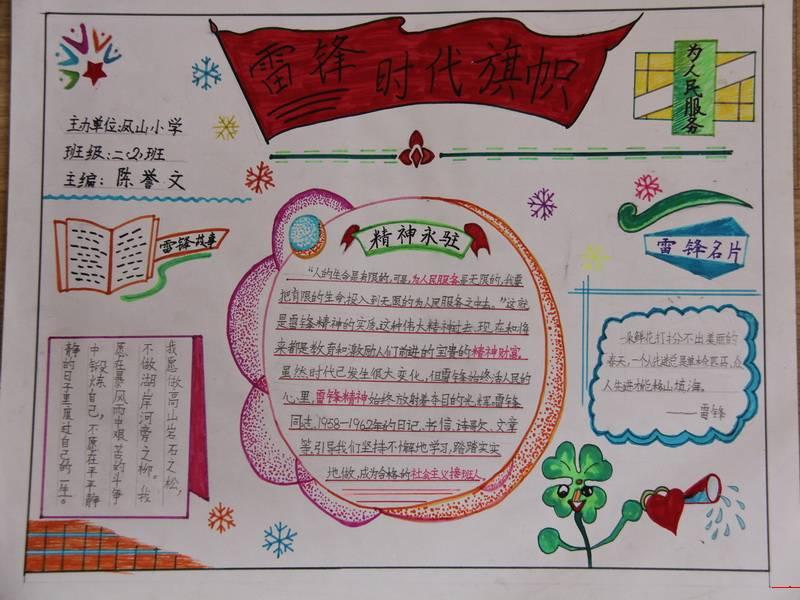 雷锋时代旗帜
为人民服务
主办单位:凤山小学
班级:二(2)班
主编:陈誉文
雷锋故事
精神永驻
雷锋名片
“人的生命是有限的,可是,为人民服务是无限的,我要
把有限的生命投入到无限的为人民服务之中去。”这就
是雷锋精神的实质,这种伟大精神过去、现在和将
来都是教育和激励人们前进的宝贵的精神财富。
虽然时代已发生很大变化,但雷锋始终活人民的
心里,雷锋精神始终放射着夺目的光辉,雷锋
同志,1958—1962年的日记、书信、诗歌、文章
等,引导我们坚持不懈地学习,踏踏实实
地做,成为合格的社会主义接班人。
我愿做高山岩石之松,
不做湖岸河旁之柳。我
愿在暴风雨中艰苦的斗争
中锻炼自己,不愿在平平静
静的日子里度过自己的一生。
一朵鲜花打扮不出美丽的
春天,一个人先进总是单
人先进才能移山填海。
——雷锋